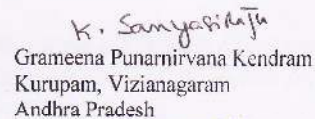 K. Sanyasi Raju
Grameena Punarnirvana Kendram
Kurupam, Vizianagaram
Andhra Pradesh